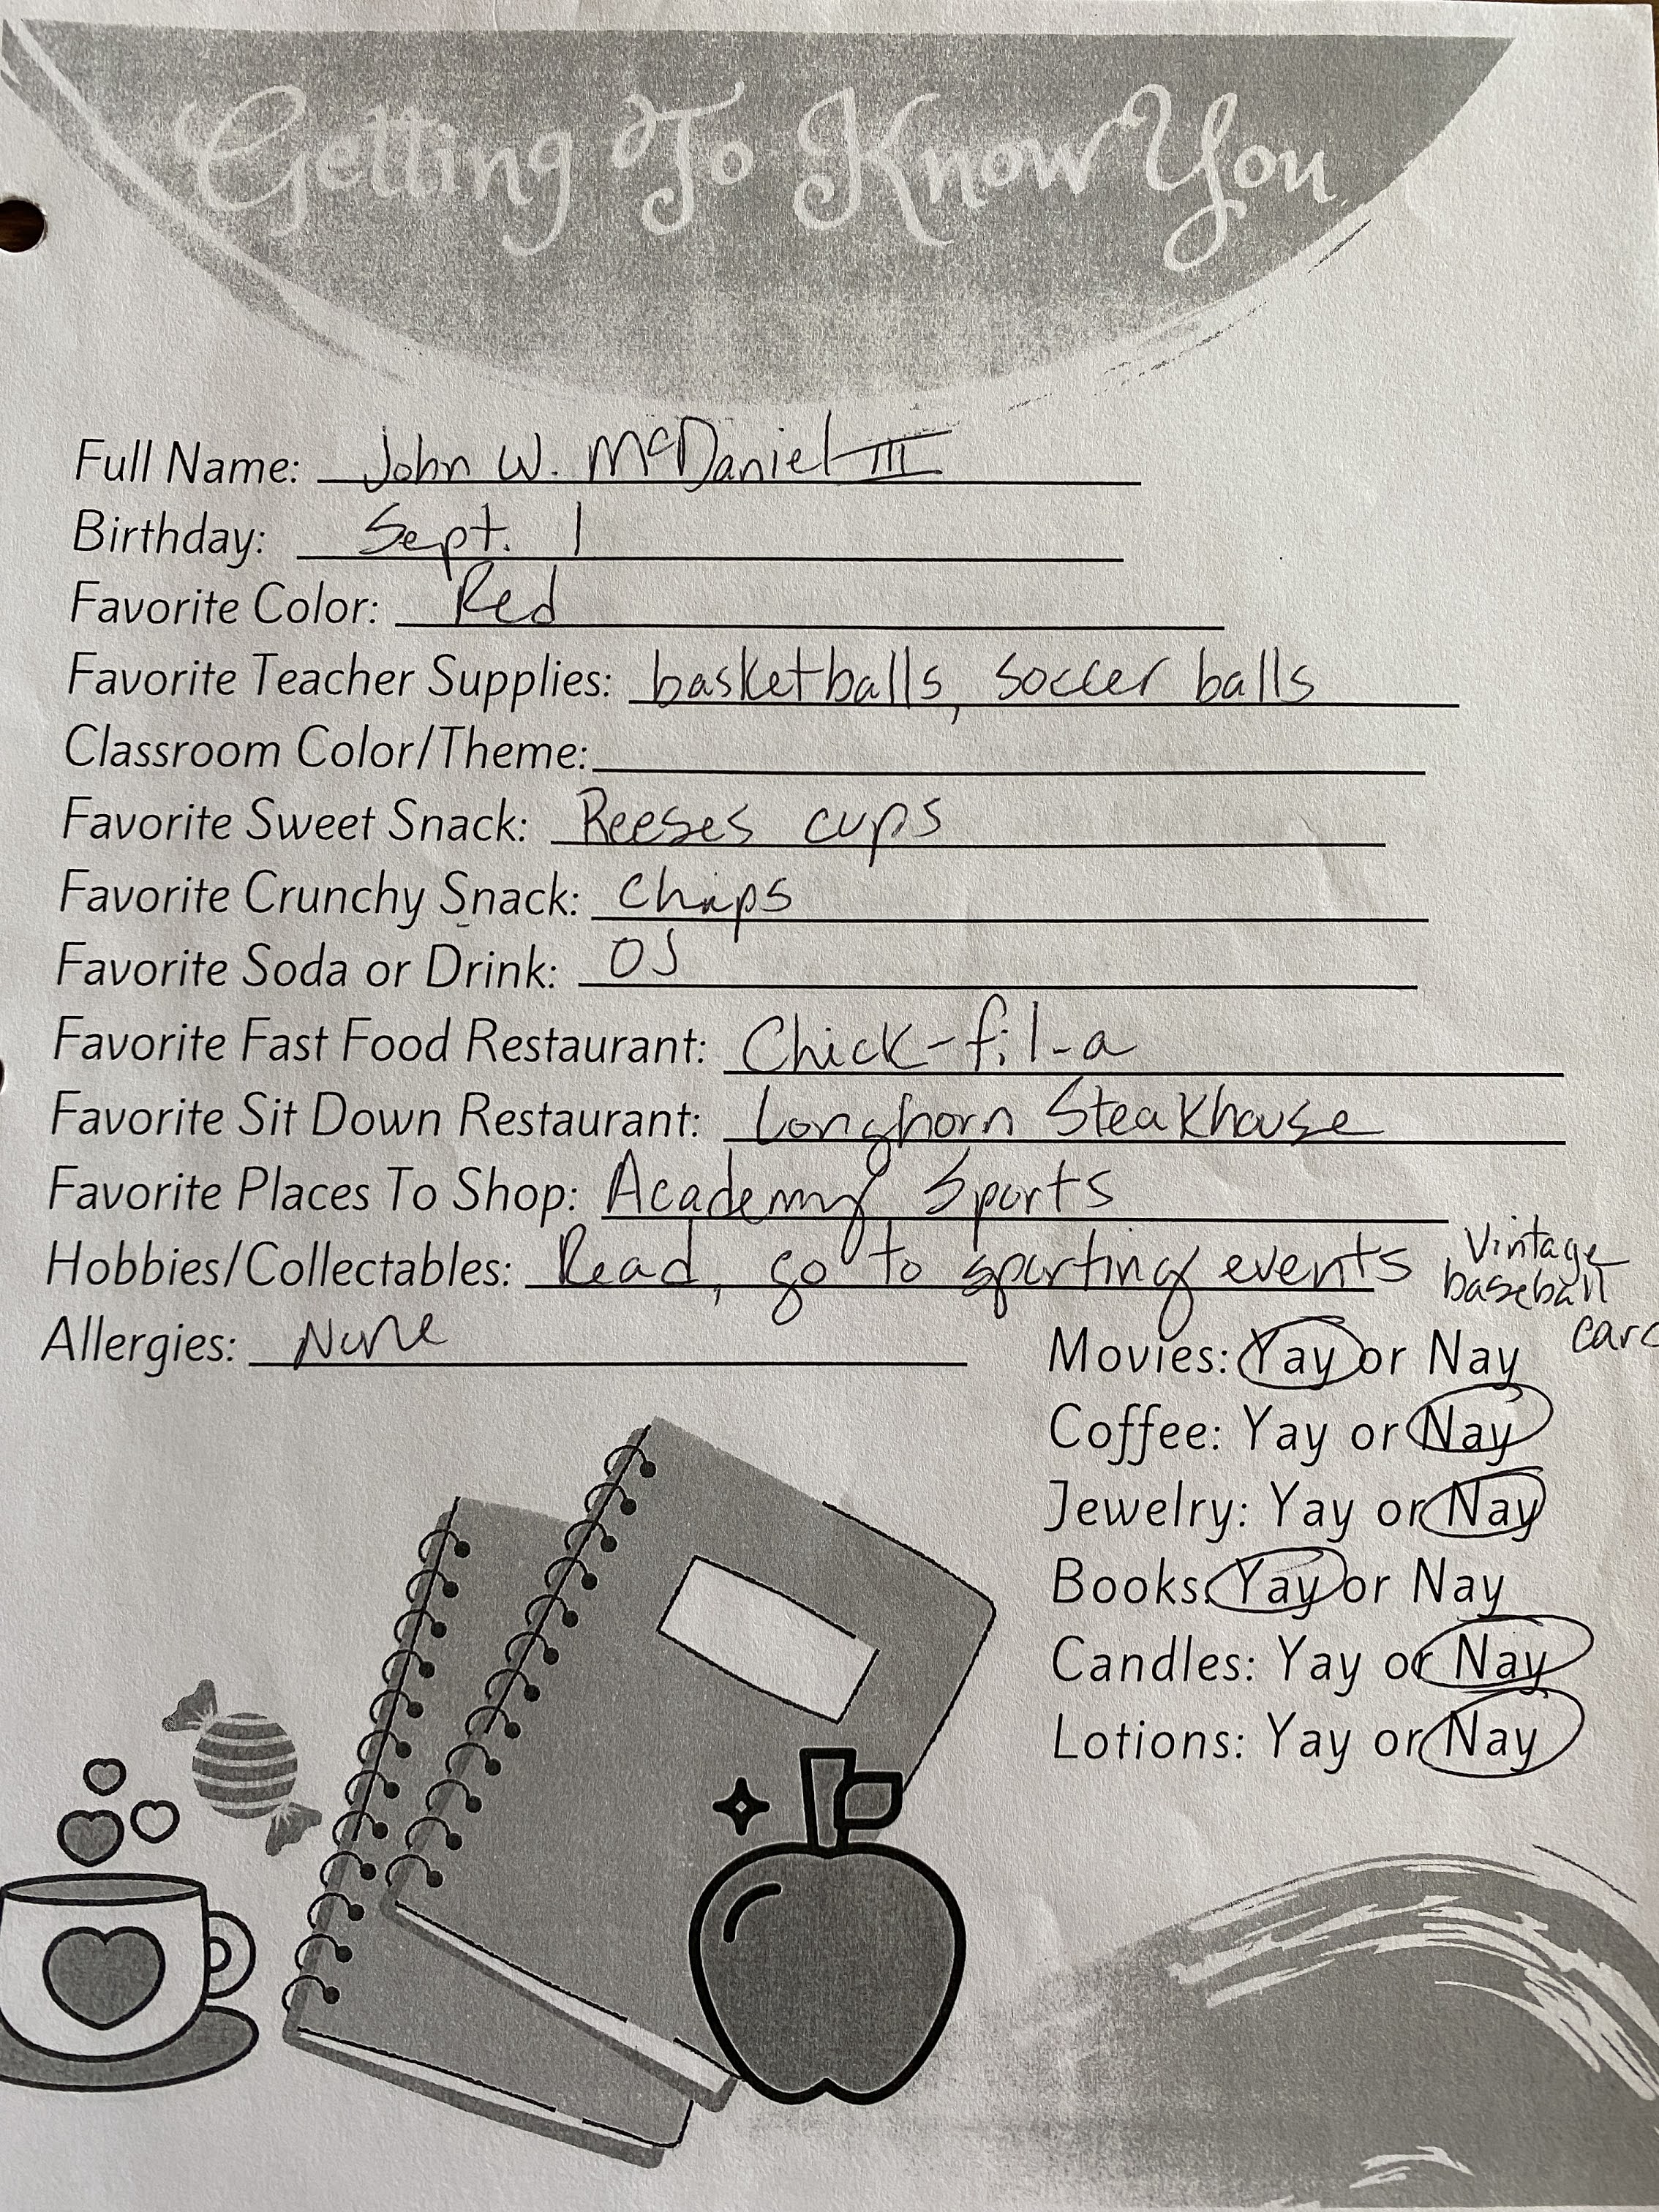 Getting To Know You
Full Name: John W. McDaniel III
Birthday: Sept. 1
Favorite Color: Red
Favorite Teacher Supplies: basketballs, soccer balls
Classroom Color/Theme:
Favorite Sweet Snack: Reeses cups
Favorite Crunchy Snack: Chips
Favorite Soda or Drink: OJ
Favorite Fast Food Restaurant: Chick-fil-a
Favorite Sit Down Restaurant: Longhorn Steakhouse
Favorite Places To Shop: Academy Sports
Hobbies/Collectables: Read, go to sporting events
Vintage
baseball
Allergies: None
Movies: Yay or Nay
Coffee: Yay or Nay
Jewelry: Yay or Nay
Books: Yay or Nay
Candles: Yay or Nay
Lotions: Yay or Nay